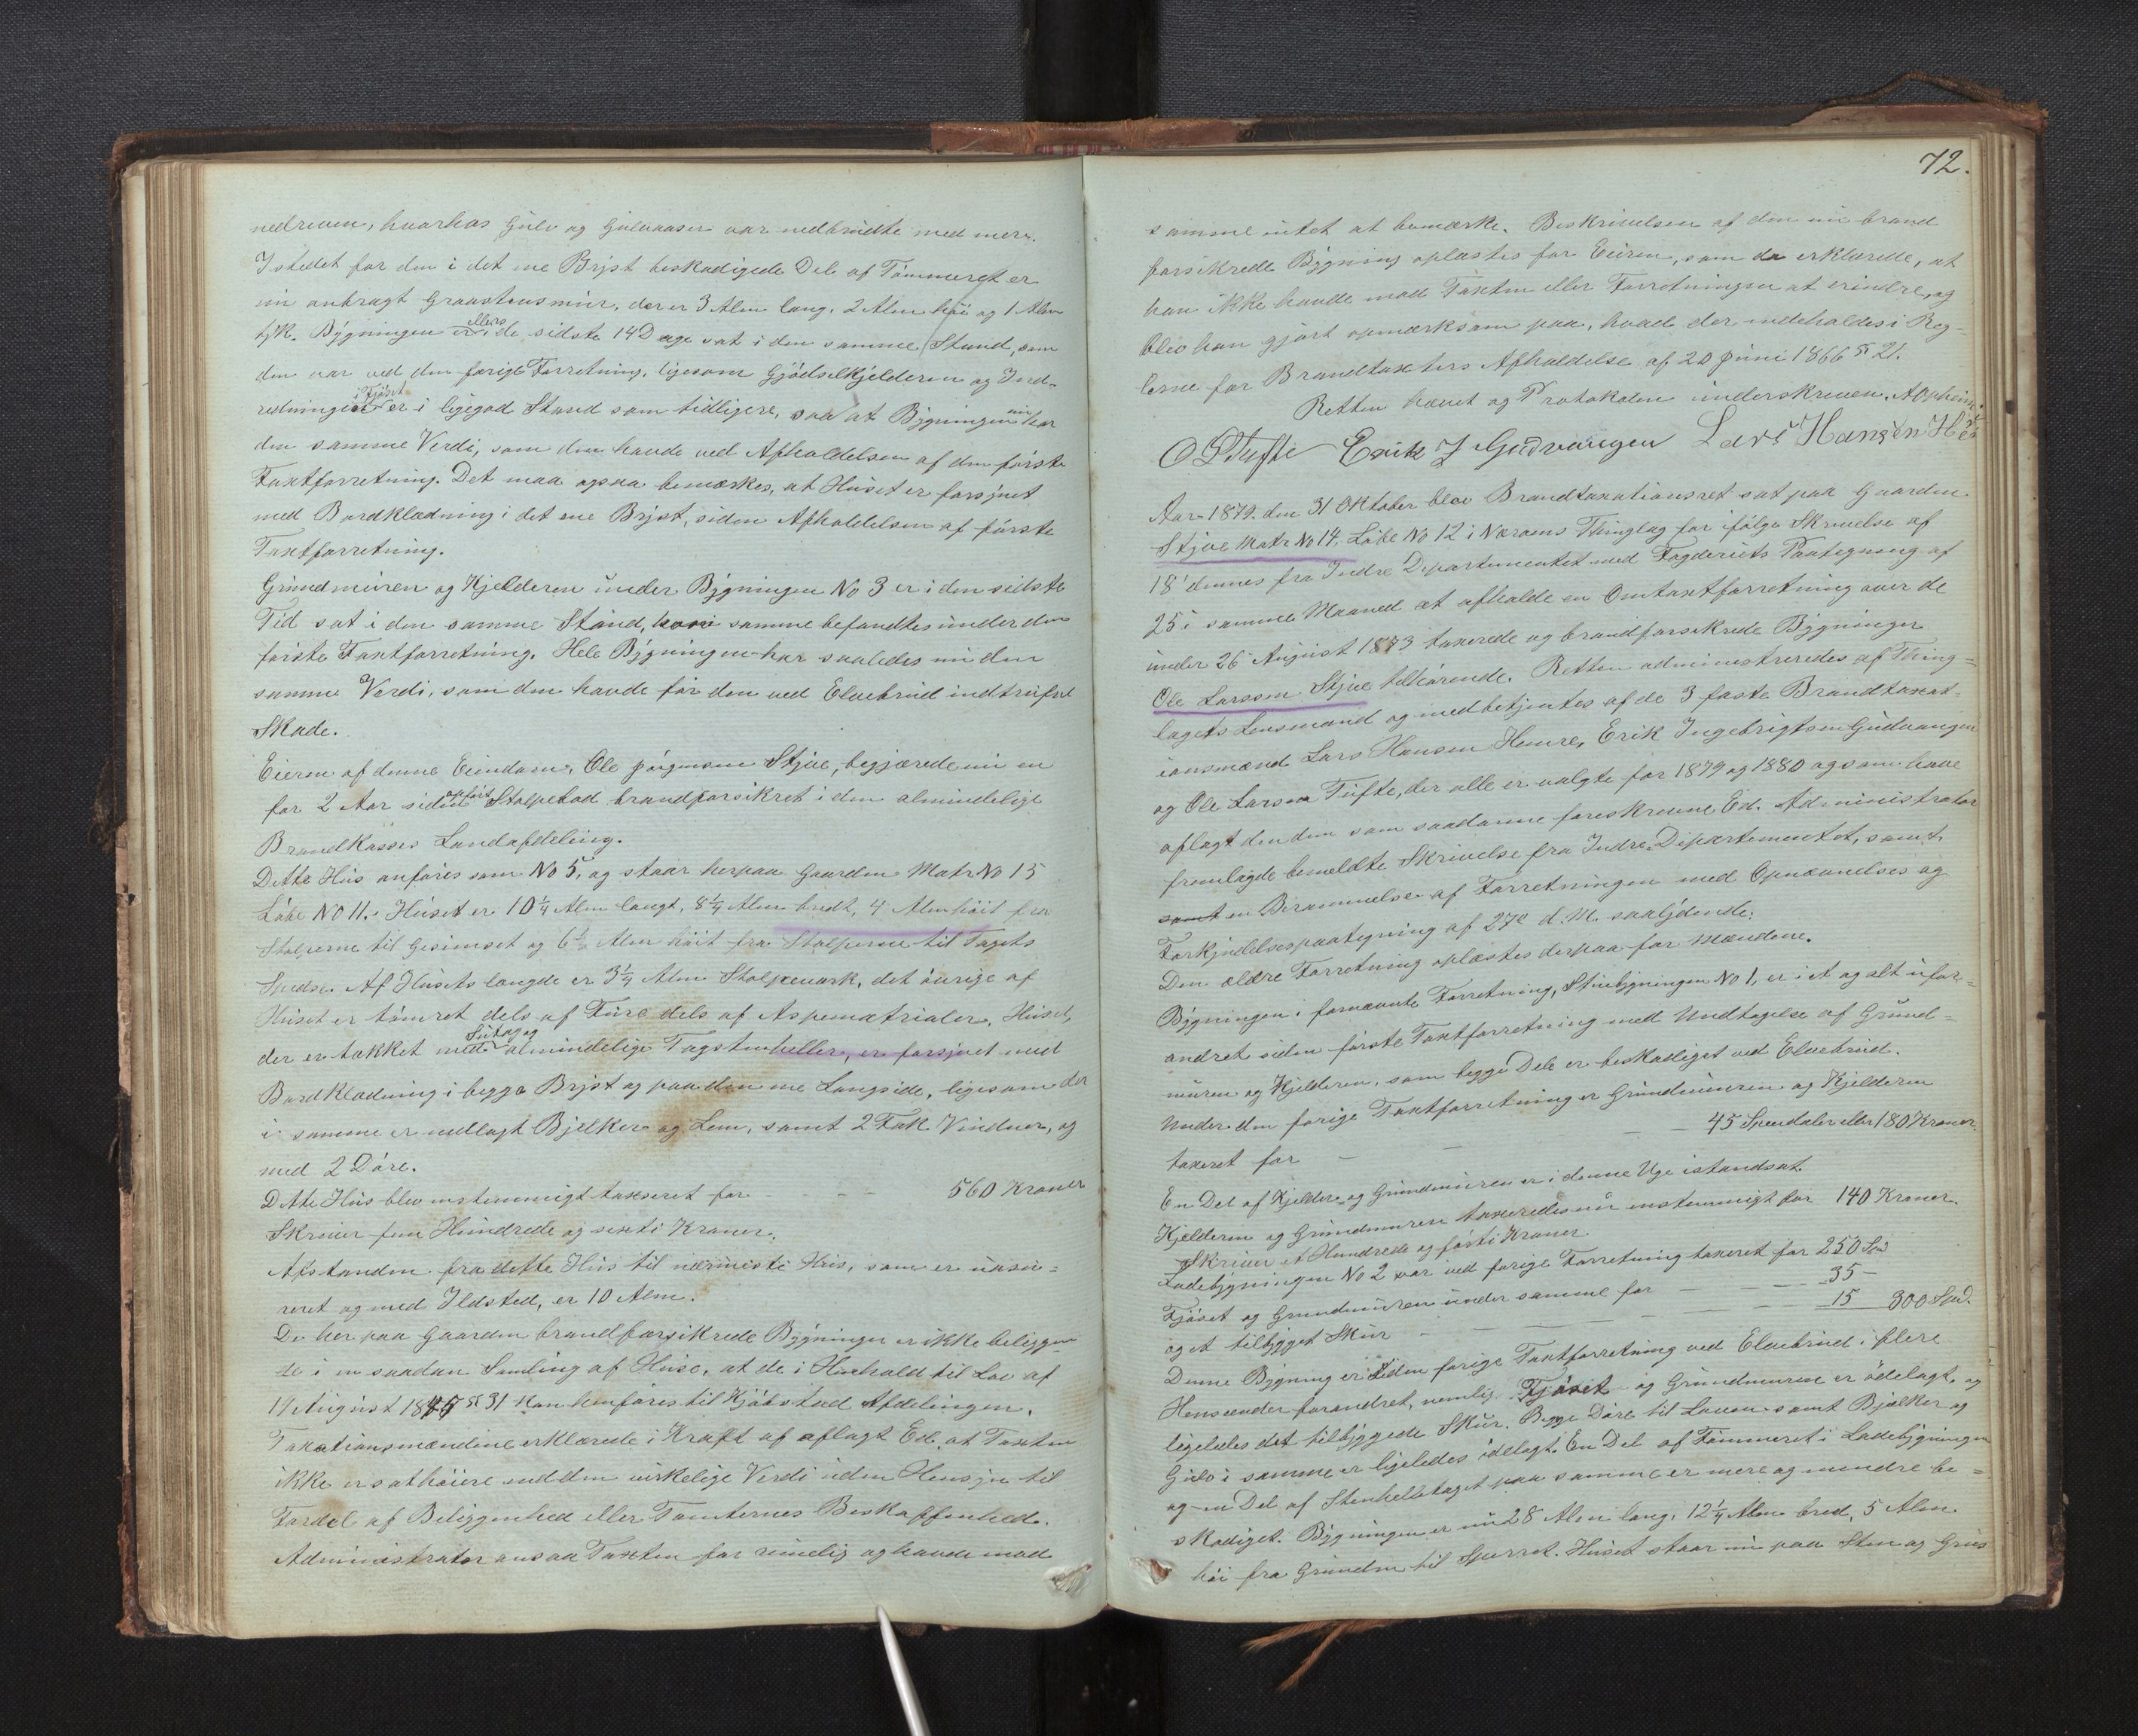 nedreven, hvorhos Gulv og Gulvaaser var nedbrudte med mere.
Istedet for den i det ene Brÿst beskadigede Del af Tømmeret er
nu anbragt Graastensmur, der er 3 Alen lang, 2 Alen høi og 1 Alen
tÿk. Bÿgningen er ellers de sidste 14 Dage sat i den samme Stand, som
den var ved den forige Forretning, ligesom Gjødselkjelderen og Ind-
redningen i Fjøset er i ligegod Stand som tidligere, saa at Bÿgningen nu har
den samme Verdi, som den havde ved Afholdelsen af den første
Taxtforretning. Det maa ogsaa bemærkes, at Huset er forsÿnet
med Bordklædning i det ene Brÿst, siden Afholdelsen af første
Taxtforretning.
Grundmuren og Kjelderen under Bÿgningen No 3 er i den sidste
Tid sat i den samme Stand, hvori samme befandtes under den
første Taxtforretning. Hele Bÿgningen har saaledes nu den
samme Verdi, som den havde før den ved Elvebrud indtrufne
Skade.
Eieren af denne Eiendom, Ole Jørgensen Stjve, begjærede nu en
for 2 Aar siden opført Stolpelad brandforsikret i den almindelige
Brandkasses Landafdeling.
Dette Hus anføres som No 5, og staar herpaa Gaarden Matr No 15
Løbe No 11. Huset er 10 1/4 Alen langt, 8 1/4 Alen bredt, 4 Alen høit fra
Stolperne til Gesimset og 6 1/2 Alen høit fra Stolperne til Tagets
Spidse. Af Husets længde er 3 1/4 Alen Stolpeværk, det øvrige af
Huset er tømret dels af Fure dels af Aspematrialer. Huset,
der er takket med Sutag og almindelige Tagstenheller, er forsÿnet med
Bordklædning i begge Brÿst og paa den ene Langside, ligesom der
i samme er nedlagt Bjelker og Lem, samt 2 Fak Vinduer, og
med 2 Døre.
Dette Hus blev enstemmigt taxseret for – – – 560 Kroner
Skriver fem Hundrede og sexti Kroner.
Afstanden fra dette Hus til nærmeste Hus, som er uasu-
reret og med Ildsted, er 10 Alen.
De her paa Gaarden brandforsikrede Bÿgninger er ikke beliggen-
de i en saadan Samling af Huse, at de i Henhold til Lov af
19 August 1845 § 31 kan henføres til Kjøbstad Afdelingen.
Taxationsmændene erklærede i Kraft af aflagt Ed, at Taxten
ikke er sat høiere end den virkelige Verdi uden Hensÿn til
Fordel af Beliggenhed eller Tomternes Beskaffenhed.
Administrator ansaa Taxten for rimelig og havde mod
72.
samme intet at bemærke. Beskrivelsen af den nu brand
forsikrede Bÿgning oplæstes for Eieren, som da erklærede, at
han ikke havde mod Taxten eller Forretningen at erindre, og
blev han gjort opmærksom paa, hvad der indeholdes i Reg-
lerne for Brandtaxters Afholdelse af 20 Juni 1866 § 21.
Retten hævet og Protokolen underskreven. A Opheim.
O L Tufte Erik I Gudvangen Lars Hansen He
Aar 1879. den 31 Oktober blev Brandtaxationsret sat paa Gaarden
Stjve Matr No 14, Løbe No 12 i Nærøens Thinglag for ifølge Skrivelse af
18' dennes fra Indre Departementet med Fogderiets Paategning af
25 i samme Maaned at afholde en Omtaxtforretning over de
under 26 August 1873 taxerede og brandforsekrede Bÿgninger
Ole Larssen Stjve tilhørende. Retten administreredes af Thing-
lagets Lensmand og medbetjentes af de 3 faste Brandtaxat-
ionsmænd Lars Hansen Hemre, Erik Ingebrigtsen Gudvangen
og Ole Larsen Tufte, der alle er valgte for 1879 og 1880 og som have
aflagt den dem som saadanne foreskrevne Ed. Administrator
fremlagde bemeldte Skrivelse fra Indre Departementet, samt
samt en Berammelse af Forretningen med Opnævnelses og
Forkÿndelsespaategning af 27e d. M. saalÿdende:
Den ældre Forretning oplæstes derpaa for Mændene.
Bÿgningen i fornævnte Forretning, Stuebÿgningen No 1, er i et og alt ufor-
andret siden første Taxtforretning med Undtagelse af Grund-
muren og Kjelderen, som begge Dele er beskadiget ved Elvebrud.
Under den forige Taxtforretning er Grundmuren og Kjelderen
taxeret for – – – – 45 Speedaler eller 180 Kroner.
En Del af Kjelder og Grundmuren er i denne Uge istandsat.
Kjelderen og Grundmuren taxeredes nu enstemmigt for 140 Kroner.
Skriver et Hundrede og førti Kroner
Ladebÿgningen No 2 var ved forige Forretning taxeret for 250 Spd
Fjøset og Grundmuren under samme for – – – 35 –
og et tilbÿgget Skur – – – – 15 300 Spd.
Denne Bÿgning er siden forige Taxtforretning ved Elvebrud i flere
Henseender forandret, nemlig: Fjøset og Grundmuren er ødelagt, og
ligeledes det tilbÿggede Skur. Begge Døre til Laven samt Bjelker og
Gulv i samme er ligeledes ødelagt. En Del af Tømmeret i Ladebÿgningen
og en Del af Stenhelletaget paa samme er mere og mindre be-
skadiget. Bÿgningen er nu 28 Alen lang, 12 1/4 Alen bred, 5 Alen
høi fra Grunden til Sperret. Huset staar nu paa Sten og Grus